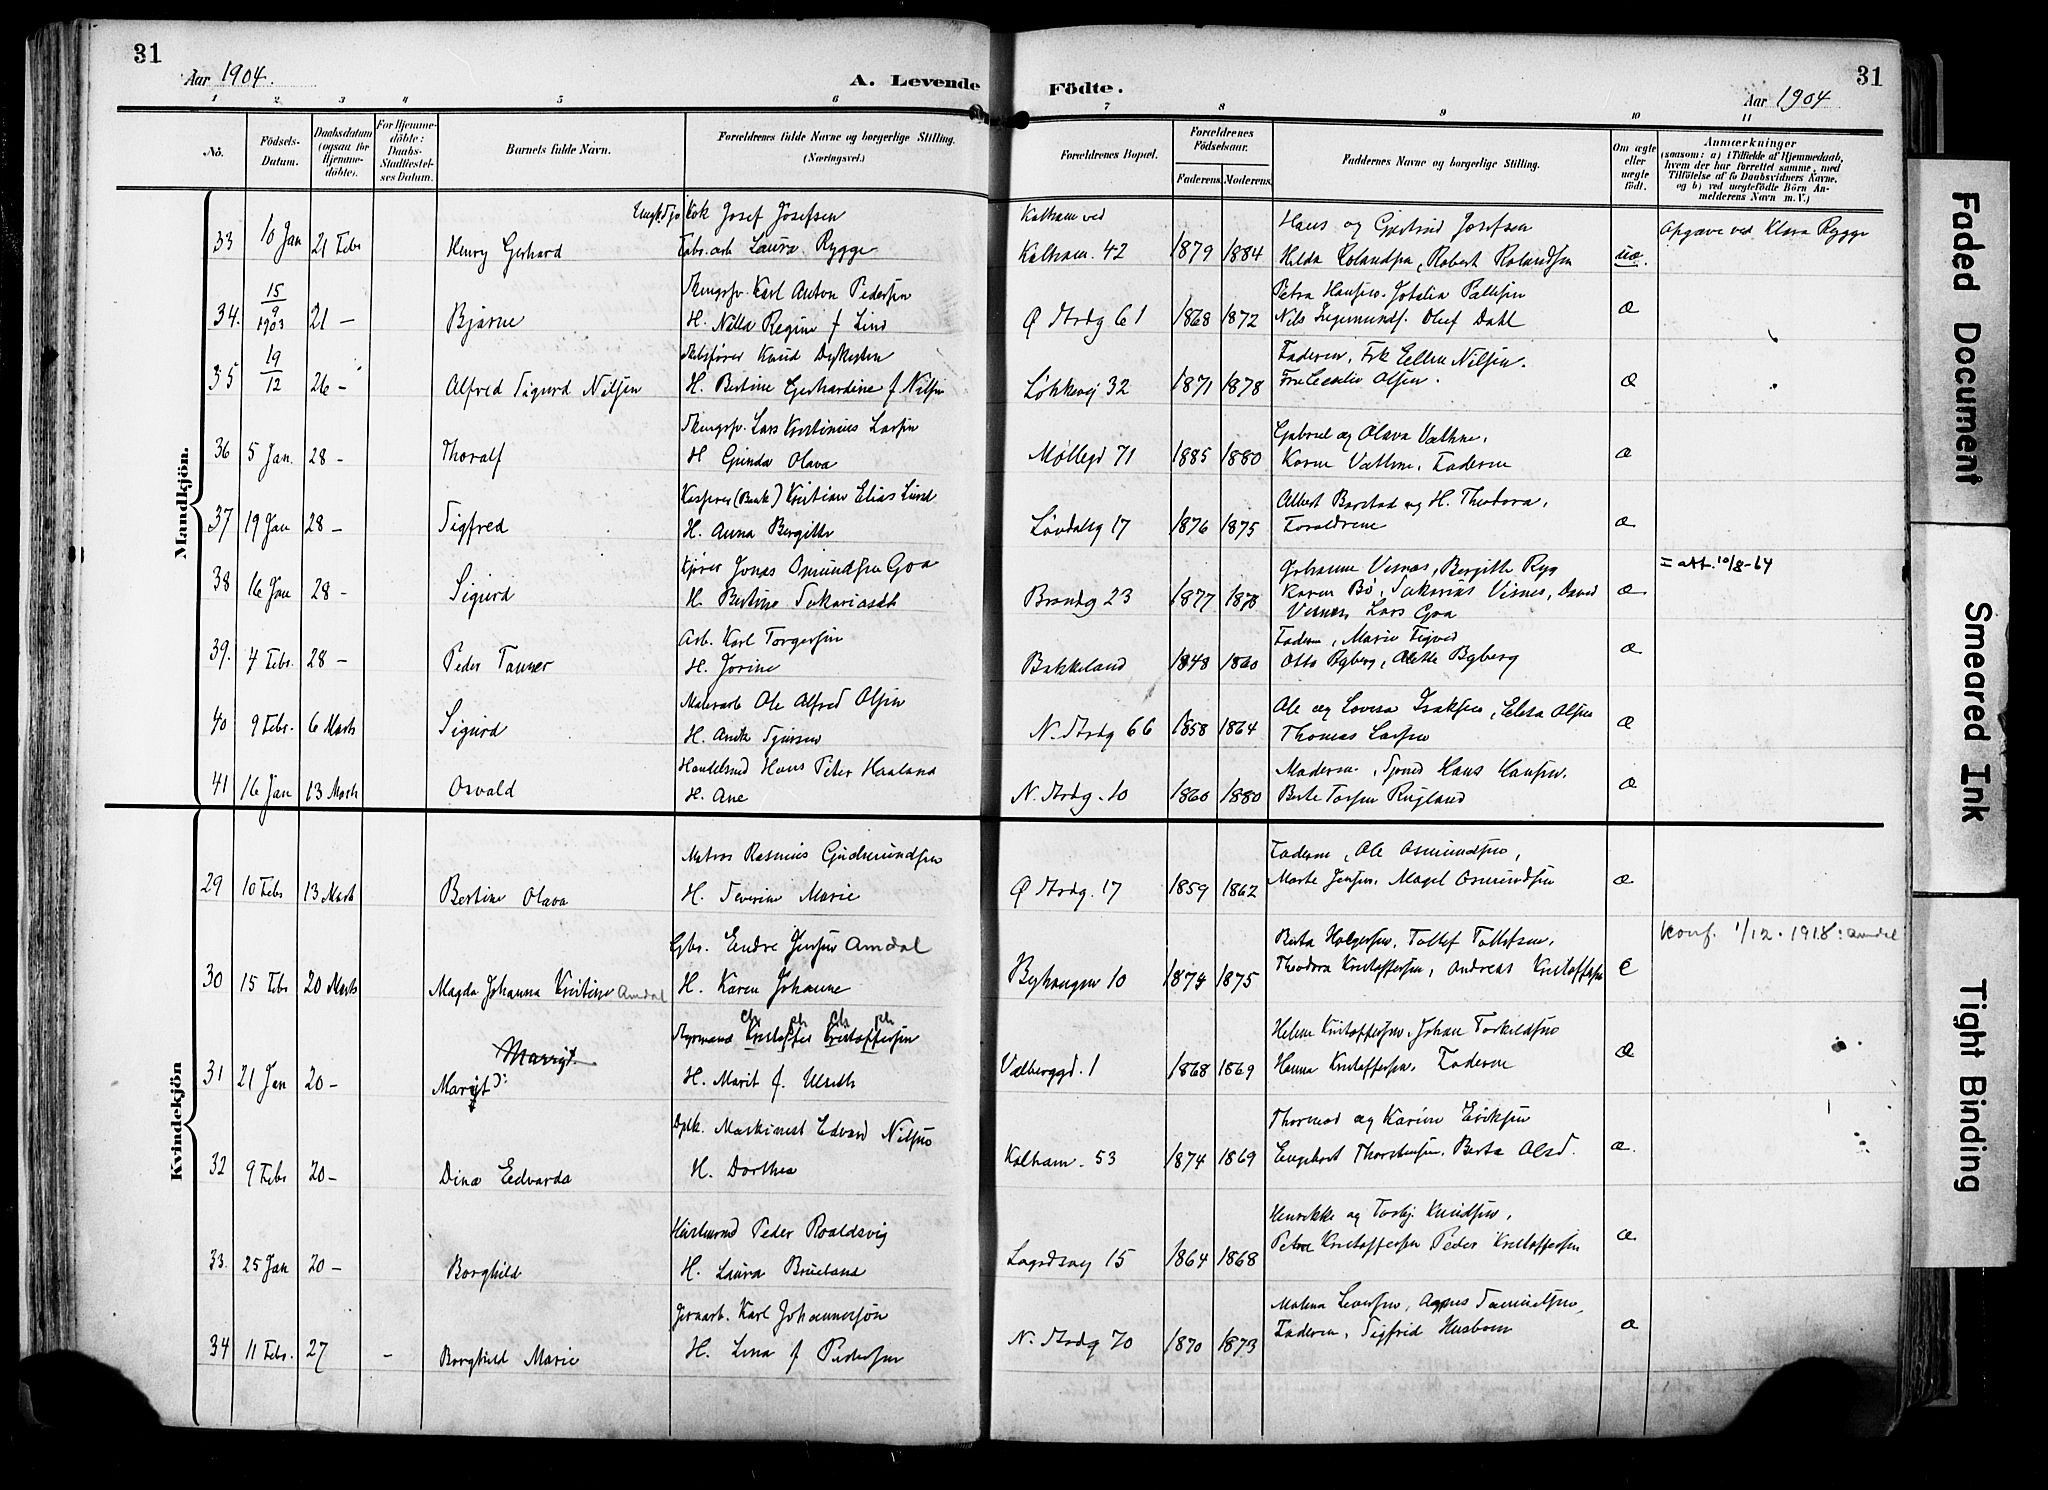 31
Aar 1904.
A. Levende
Födte.
Aar 1904
31
1 2 3 4 5 6 7 8 9 10 11
No.
Födsels-Datum.
Daabsdatum (ogsaa for Hjemmedöbte).
For Hjemmedöbte: Daabs-Stadfæstelses Datum.
Barnets fulde Navn.
Forældrenes fulde Navne og borgerlige Stilling. (Næringsvei.)
Forældrenes Bopæl.
Forældrenes Födselsaar.
Faderens. Moderens.
Faddernes Navne og borgerlige Stilling.
Om ægte eller uægte födt.
Anmærkninger
(saasom: a) i Tilfælde af Hjemmedaab, hvem der har forrettet samme, med Tilföielse af to Daabsvidners Navne, og b) ved uægtefödte Börn Anmelderens Navn m. V.)
Mandkjön.
Kok Josef Josefsen Kalham ved Hans og Gjertrud Josefsen Opgave ved Klara Rygge
33 10 Jan 21 Febr Henry Gerhard Fabr.arb Laura Rygge Kalham. 42 1879 1884 Hilda Rolandsen, Robert Rolandsen uæ.
Karl Anton Pedersen Petra Hansen. Jotalia Pallesen
34. 15/9 1903 21 – Bjarne H. Nilla Regine f Lind Ø Strdg 61 1868 1872 Nils Ingemunds. Oluf Dahl æ
Knud Dykesten Faderen, Frk Ellen Nilsen.
35 19/12 26 – Alfred Sigurd Nilsen H. Bertine Gerhardine f. Nilsen Løkkevej 32 1871 1878 Fru Cecilie Olsen. æ
Lars Kristinius Larsen Gabriel og Olava Vathne,
36 5 Jan. 28 – Thoralf H Gunda Olava Møllegd 71 1885 1880 Karen Vathne, Faderen æ
Kasserer (Bank) Kristian Elias Lund Albert Barstad og H. Theodora,
37 19 Jan 28 – Sigfred H. Anna Bergitte Løvdalsg 17 1876 1875 Forældrene æ
Jonas Osmundsen Goa Johanne Visnes, Bergitte Ryg = att. 10/8-64
38 16 Jan 28 – Sigurd H. Bertine Sakariasdt Brandg 23 1877 1878 Karen Bø, Sakarias Visnes, David æ
Visnes, Lars Goa
Arb. Karl Torgersen Faderen, Marie Tigved
39. 4 Febr. 28 – Peder Tanner H. Jorine Bakkeland 1848 1860 Otto Byberg, Alette Byberg æ
Malerarb Ole Alfred Olsen Ole og Lovisa Isaksen, Elisa Olsen
40 9 Febr. 6 Marts Sigurd H. N. Strdg 66 1858 1864 Thomas Larsen æ
Handelsmd Hans Peter Haaland Moderen, Hans Hansen.
41 16 Jan 13 Marts Osvald H. Ane N. Strdg. 10 1860 1880 Berte Rugland æ
Kvindekjön
Matros Rasmus Gudmundsen Faderen, Ole Osmundsen,
29 10 Febr 13 Marts Bertine Olava H. Severine Marie Ø Strdg. 17 1859 1862 Marte Jensen, Magel Osmundsen æ
Gbr. Endre Jensen Amdal Berta Holgersen, Tollef Tollefsen, Konf. 1/12. 1918: Amdal
30 15 Febr 20 Marts Magda Johanna Kristine Amdal H. Karen Johanne Byhaugen 10 1874 1875 Theodora Kristoffersen, Andreas Kristoffersen
ch ph ch ph
Styrmand Kristoffer Kristoffersen Helene Kristoffersen, Johan Torkildsen
Margit.
31 21 Jan 20 – Margit H. Marit f. Ulseth Valberggd. 1 1868 1869 Hanna Kristoffersen. Faderen æ
Maskinist Edvard Nilsen Thormod og Karine Eriksen
32 9 Febr 20 – Dina Edvarda H. Dorthea Kalham. 53 1874 1869 Engebret Thorstensen, Berta Olsd. æ.
Peder Roaldsvig Henrikke og Torbj. Knudsen,
33. 25 Jan 20 – Borghild H. Laura Brueland Lagårdsvej 15 1864 1868 Petra Kristoffersen Peder Kristoffersen æ
Jernarb. Karl Johannesson Malena Leversen, Agnes Samuelsen,
34 11 Febr. 27 – Borghild Marie H. Lina f Pedersen N. Strdg 70 1870 1873 Faderen, Sigfrid Husbom æ
Faded Document
Smeared Ink
Tight Binding